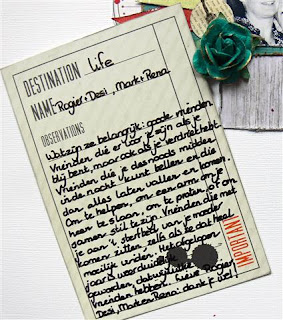 DESTINATION life
NAME Rogier + Desi, Mark + Rena
OBSERVATIONS
Wat zijn ze belangrijk: goede vrienden.
Vrienden die er voor je zijn als je
blij bent, maar ook als je verdriet hebt.
Vrienden die je desnoods midden
in de nacht kunt bellen en die
dan alles laten vallen en komen.
Om te helpen, om een arm om je
heen te slaan, om te praten, of om
samen stil te zijn. Vrienden die met
je aan 't sterfbed van je moeder
komen zitten, zelfs als ze dat heel
moeilijk vinden. Het afgelopen
jaar is weer duidelijk
geworden dat wij
vrienden hebben. Lieve Rogier
Desi, Mark en Rena: dank je wel!
IMPORTANT